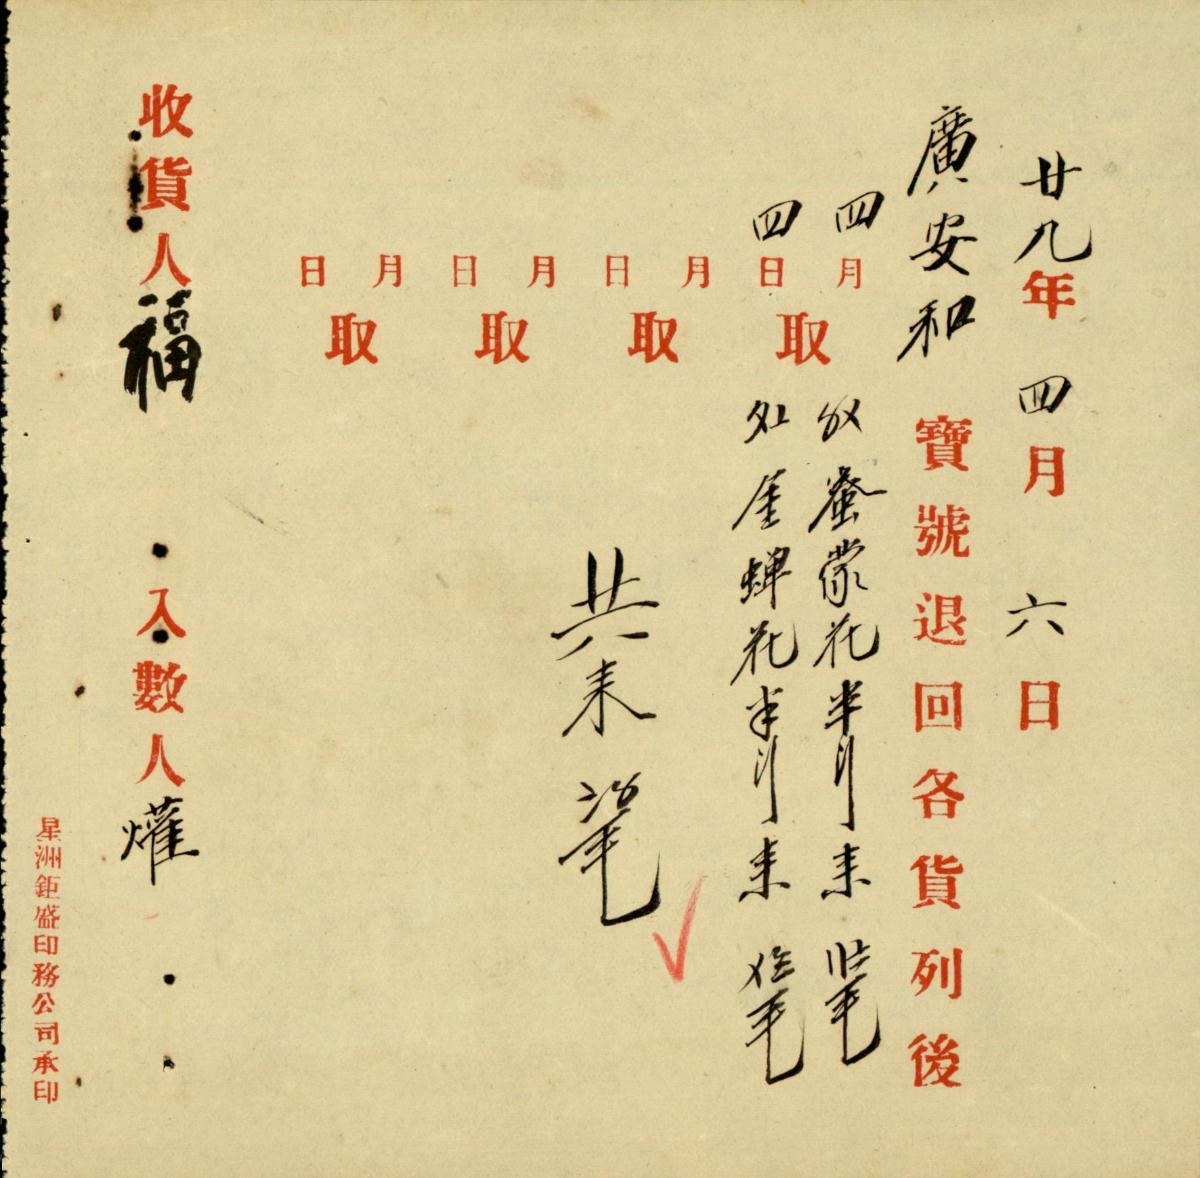 廿九年四月六日
廣安和寶號退回各貨列後
四月 日取 蒙花半斤来
四 蝉花半斤来
月 日取
月 日取
月 日取
共来
收貨人福 入數人燿
星洲鉅盛印務公司承印